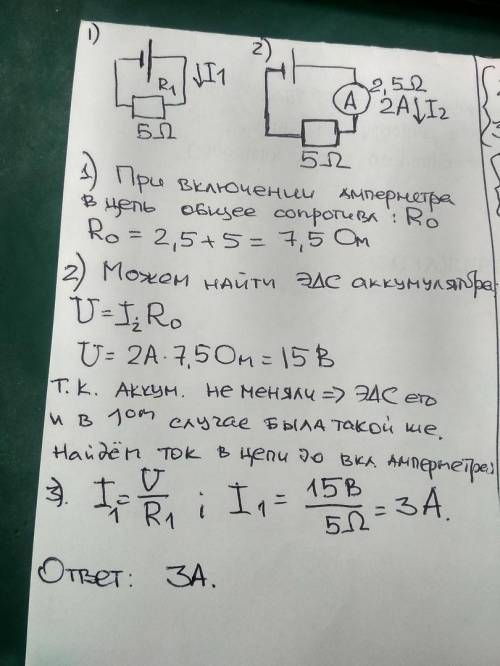 1)
R1
↓I1
5Ω
2)
A
2,5Ω
2A↓I2
5Ω
1) При включении амперметра
в цепь общее сопротивл: R0
R0 = 2,5 + 5 = 7,5 Ом
2) Можем найти ЭДС аккумулятора:
U = I2 R0
U = 2А · 7,5 Ом = 15 В
Т.к. аккум. не меняли => ЭДС его
и в 1ом случае была такой же.
Найдём ток в цепи до вкл. амперметра:
3). I1 = U/R1 ; I1 = 15В/5Ω = 3А.
Ответ: 3А.